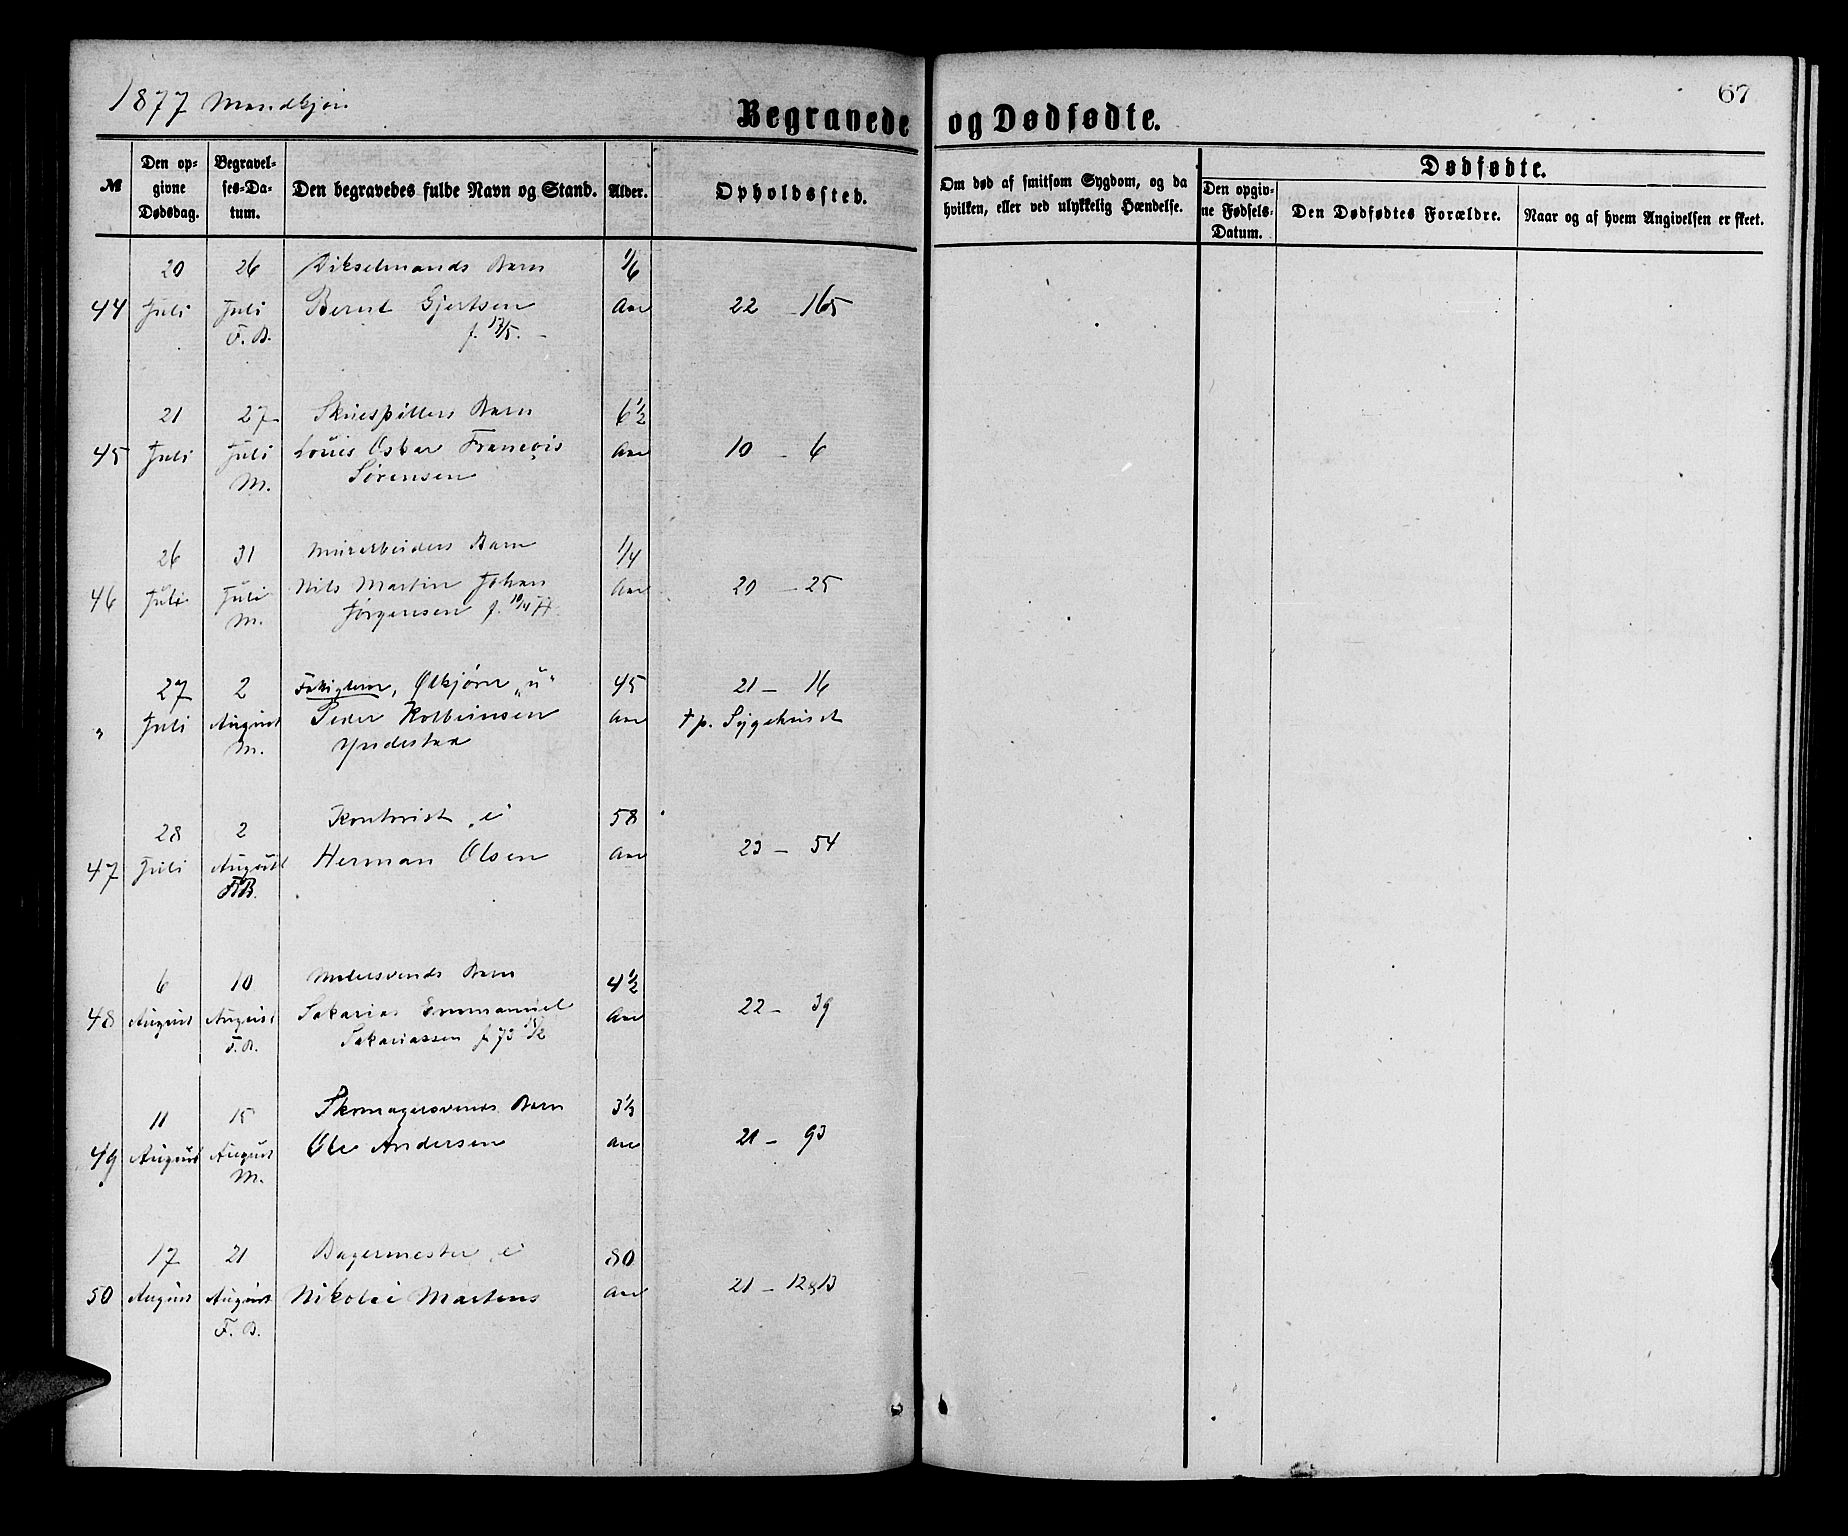 1877 Mandkjøn
67
Begravede og Dødfødte.
№
Den opgivne Dødsdag.
Begravelses-Datum.
Den begravedes fulde Navn og Stand.
Alder.
Opholdssted.
Om død af smitsom Sygdom, og da hvilken, eller ved ulykkelig Hændelse.
Dødfødte.
Den opgivne Fødsels-Datum.
Den Dødfødtes Forældre.
Naar og af hvem Angivelsen er skeet.
20 26 Barn 1/6
44 Juli Juli Bernt Gjertsen Aar 22 - 165
F. B. f. 17/5. -
21 27 Skuespillers Barn 6 1/2
45 Juli Juli Louis Oskar Francois Aar 10 - 6
M. Sørensen
26 31 Murarbeiders Barn 1/4
46 Juli Juli Nils Martin Johan Aar 20 - 25
M. Jørgensen f. 10/4 77
27 2 Fattiglem, Ølkjører „u“ 45 21 - 16
" Juli August Peder Kolbeinsen Aar † p. Sygehuset
M. Yndestad
28 2 Kontorist „e“ 58
47 Juli August Herman Olsen Aar 23 - 54
FB.
6 10 Malersvends Barn 4 1/2
48 August August Sakarias Emmanuel Aar 22 - 39
F. B. Sakariassen f. 73
11 15 Skomagersvends Barn 3 1/3
49 August August Ole Andersen Aar 21 - 93
M.
17 21 Bagermester „e“ 80
50 August August Nikolai Martens Aar 21 - 12 & 13
F. B.